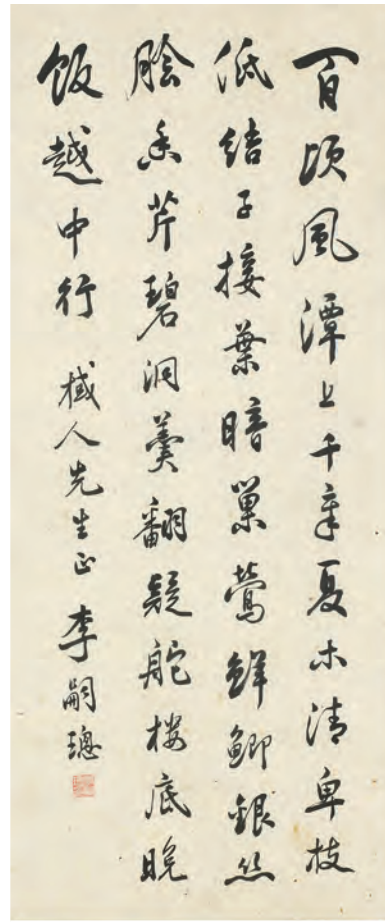 百頃風潭上千章夏木清卑枝
低結子接葉暗巢鶯鮮鯽銀絲
膾香芹碧澗羹翻疑舵楼底晚
飯越中行 棫人先生正 李嗣璁